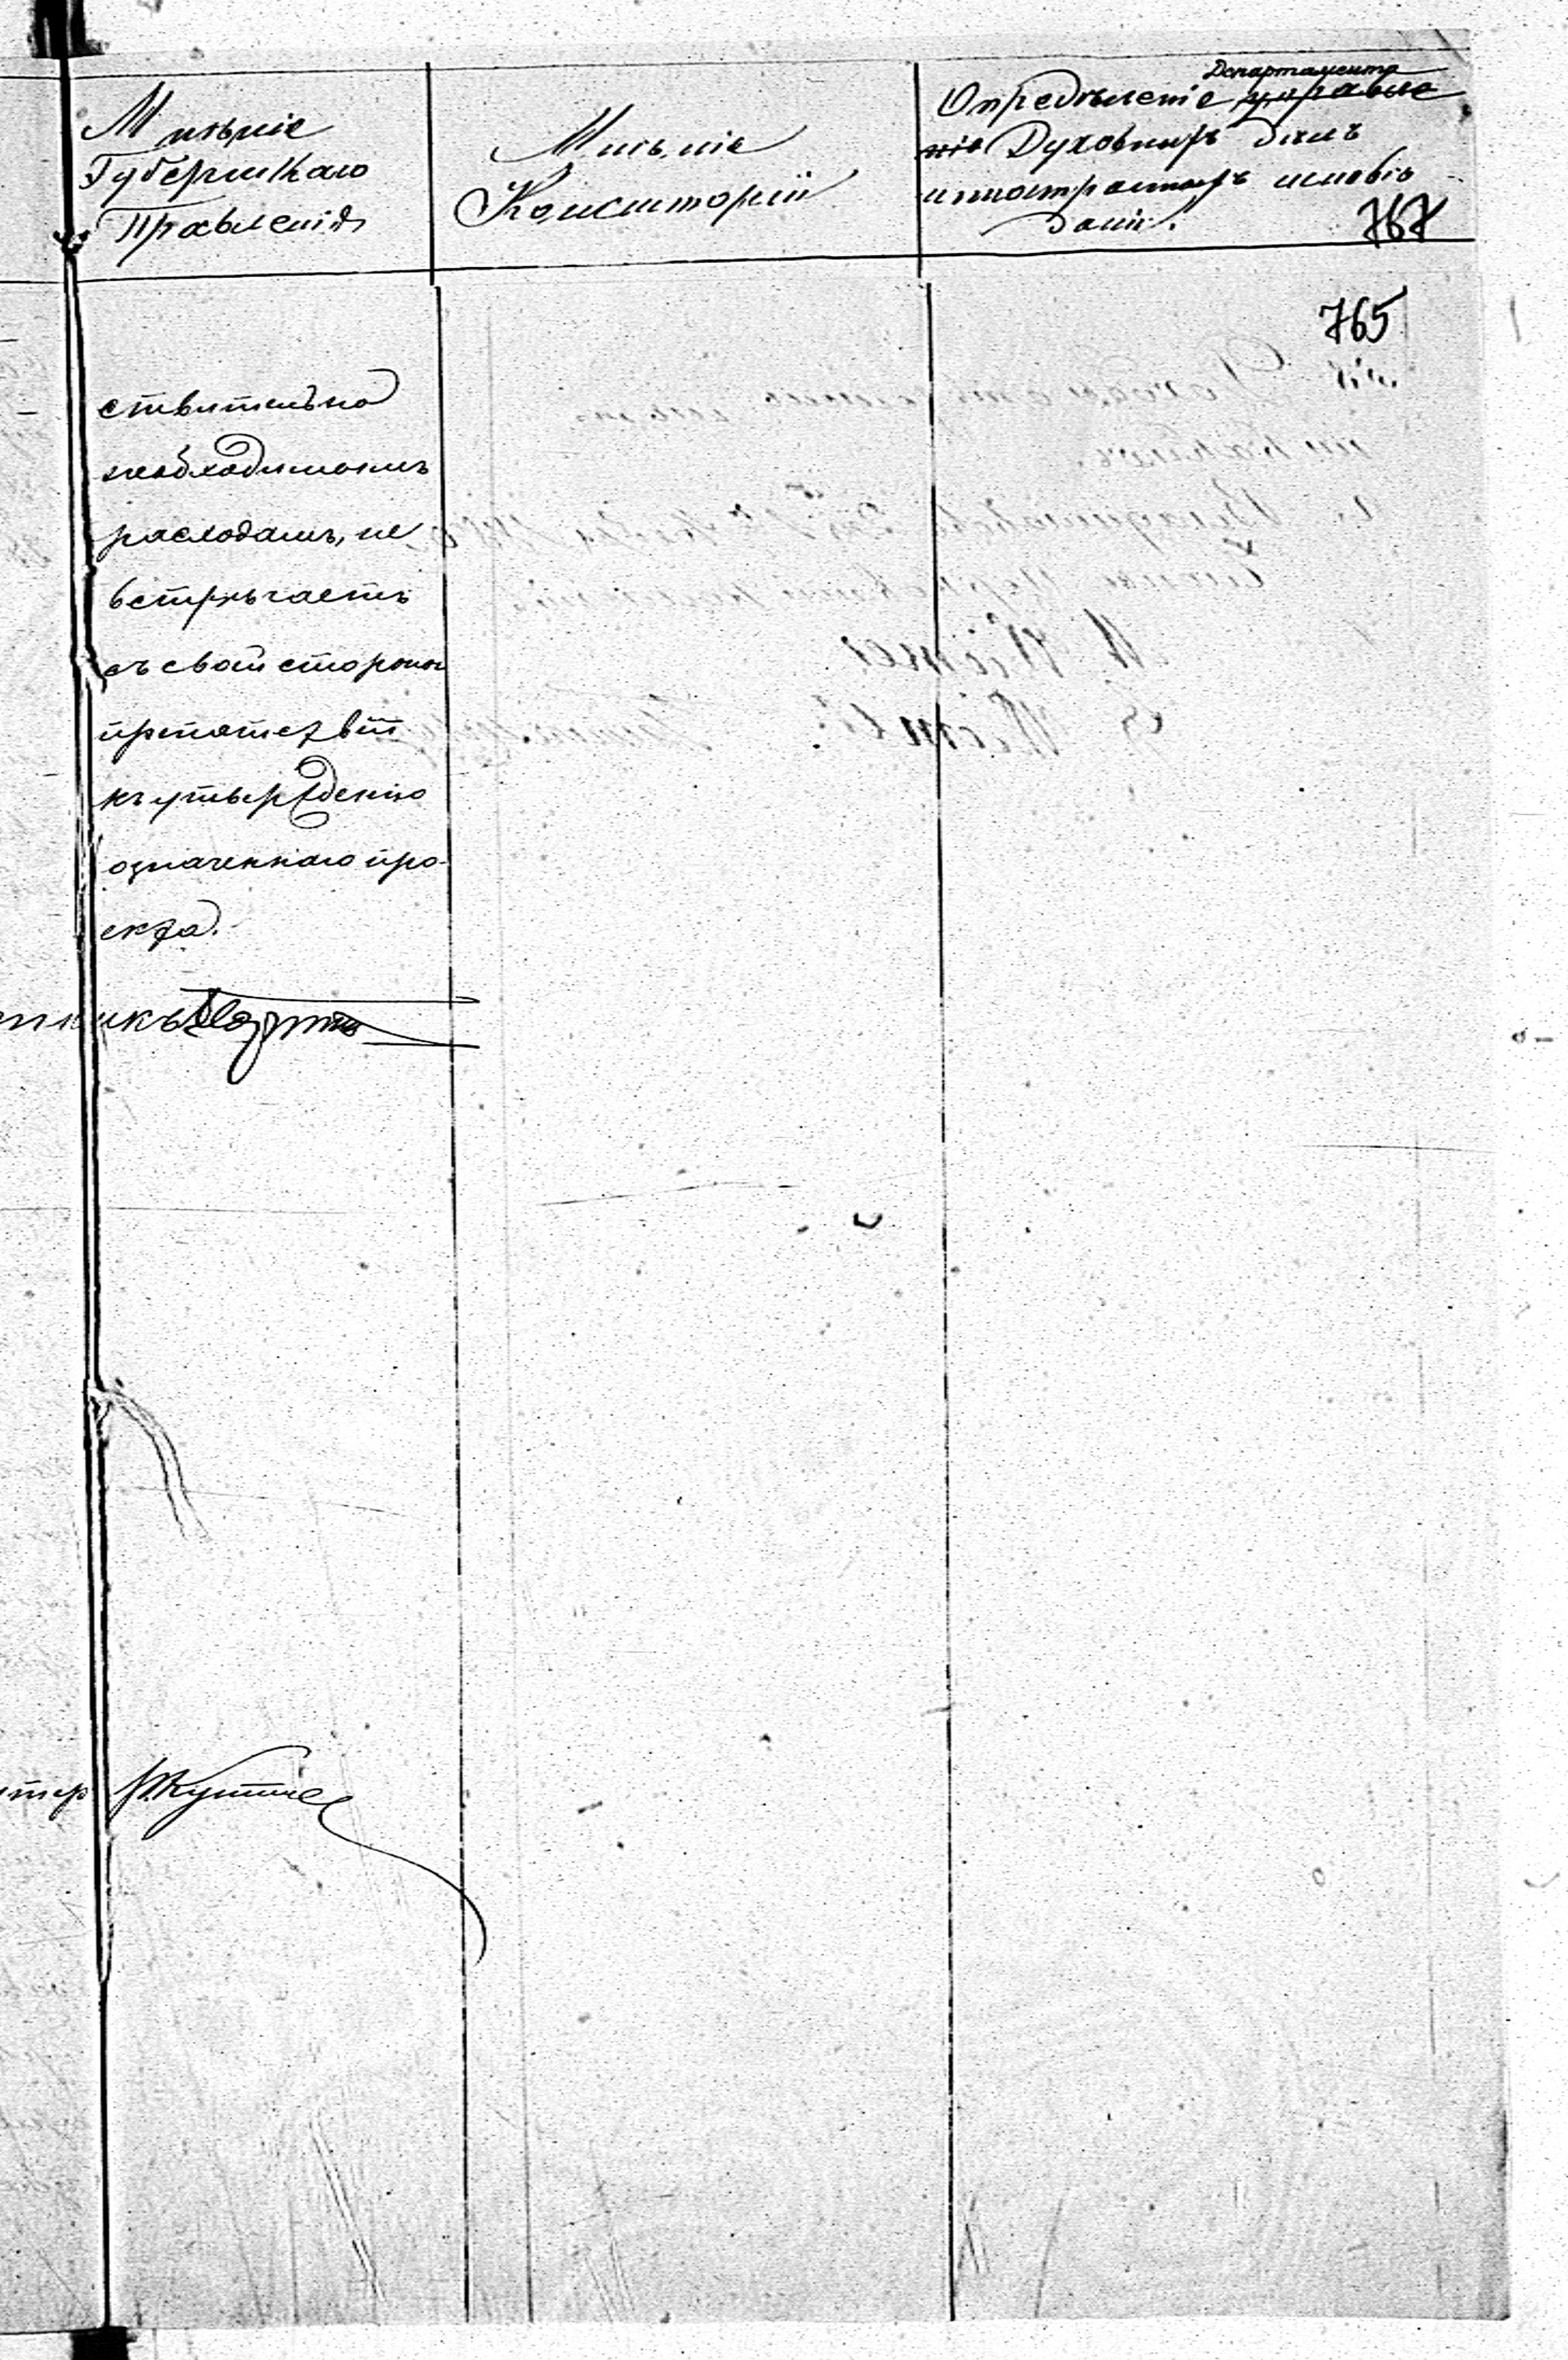 Мнѣніе
Губернскаго
Правленія
Мнѣніе
Консисторіи
Департамента
Опредѣленіе управле
нія Духовныхъ дѣлъ
иностранныхъ исповѣ
даній.
767
765
ствительно
необходимымъ
расходамъ, не
встрѣчаетъ
съ своей стороны
препятствій
къ утвержденію
означеннаго про-
екта.